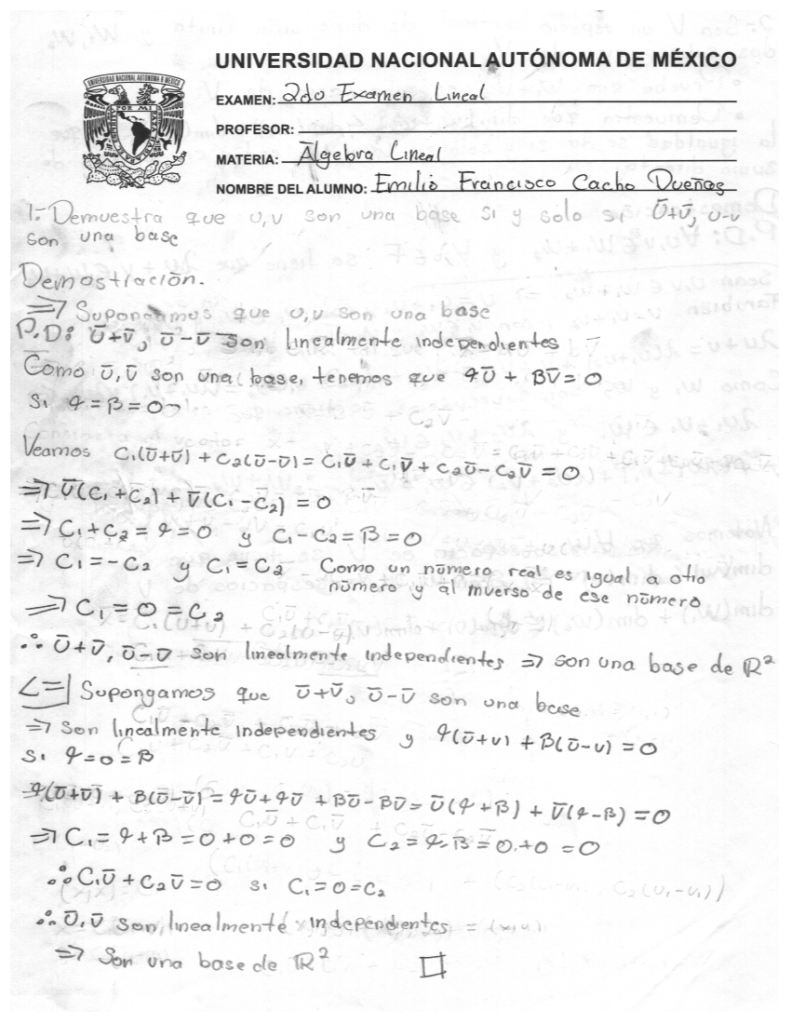 UNIVERSIDAD NACIONAL AUTÓNOMA DE MÉXICO
EXAMEN: 2do Examen Lineal
PROFESOR:
MATERIA: Álgebra Lineal
NOMBRE DEL ALUMNO: Emilio Francisco Cacho Dueñas
1.- Demuestra que u,v son una base si y solo si ū+v̄, u-v
son una base
Demostración.
⇒| Supongamos que u,v son una base
P.D: ū+v̄, ū-v̄ son linealmente independientes
Como ū,v̄ son una base, tenemos que αū + βv̄ = 0
si α = β = 0
Veamos C₁(ū+v̄) + C₂(ū-v̄) = C₁ū + C₁v̄ + C₂ū - C₂v̄ = 0
⇒ ū(C₁+C₂) + v̄(C₁-C₂) = 0
⇒ C₁+C₂ = α = 0 y C₁-C₂ = β = 0
⇒ C₁ = -C₂ y C₁ = C₂ Como un número real es igual a otro
número y al inverso de ese número
⇒ C₁ = 0 = C₂
∴ ū+v̄, ū-v̄ son linealmente independientes ⇒ son una base de ℝ²
⇐| Supongamos que ū+v̄, ū-v̄ son una base
⇒ son linealmente independientes y α(ū+v) + β(ū-v) = 0
si α = 0 = β
α(ū+v̄) + β(ū-v̄) = αū + αū + βū - βv̄ = ū(α+β) + v̄(α-β) = 0
⇒ C₁ = α+β = 0+0 = 0 y C₂ = α-β = 0+0 = 0
∴ C₁ū + C₂v̄ = 0 si C₁ = 0 = C₂
∴ ū,v̄ son linealmente independientes
⇒ son una base de ℝ² □